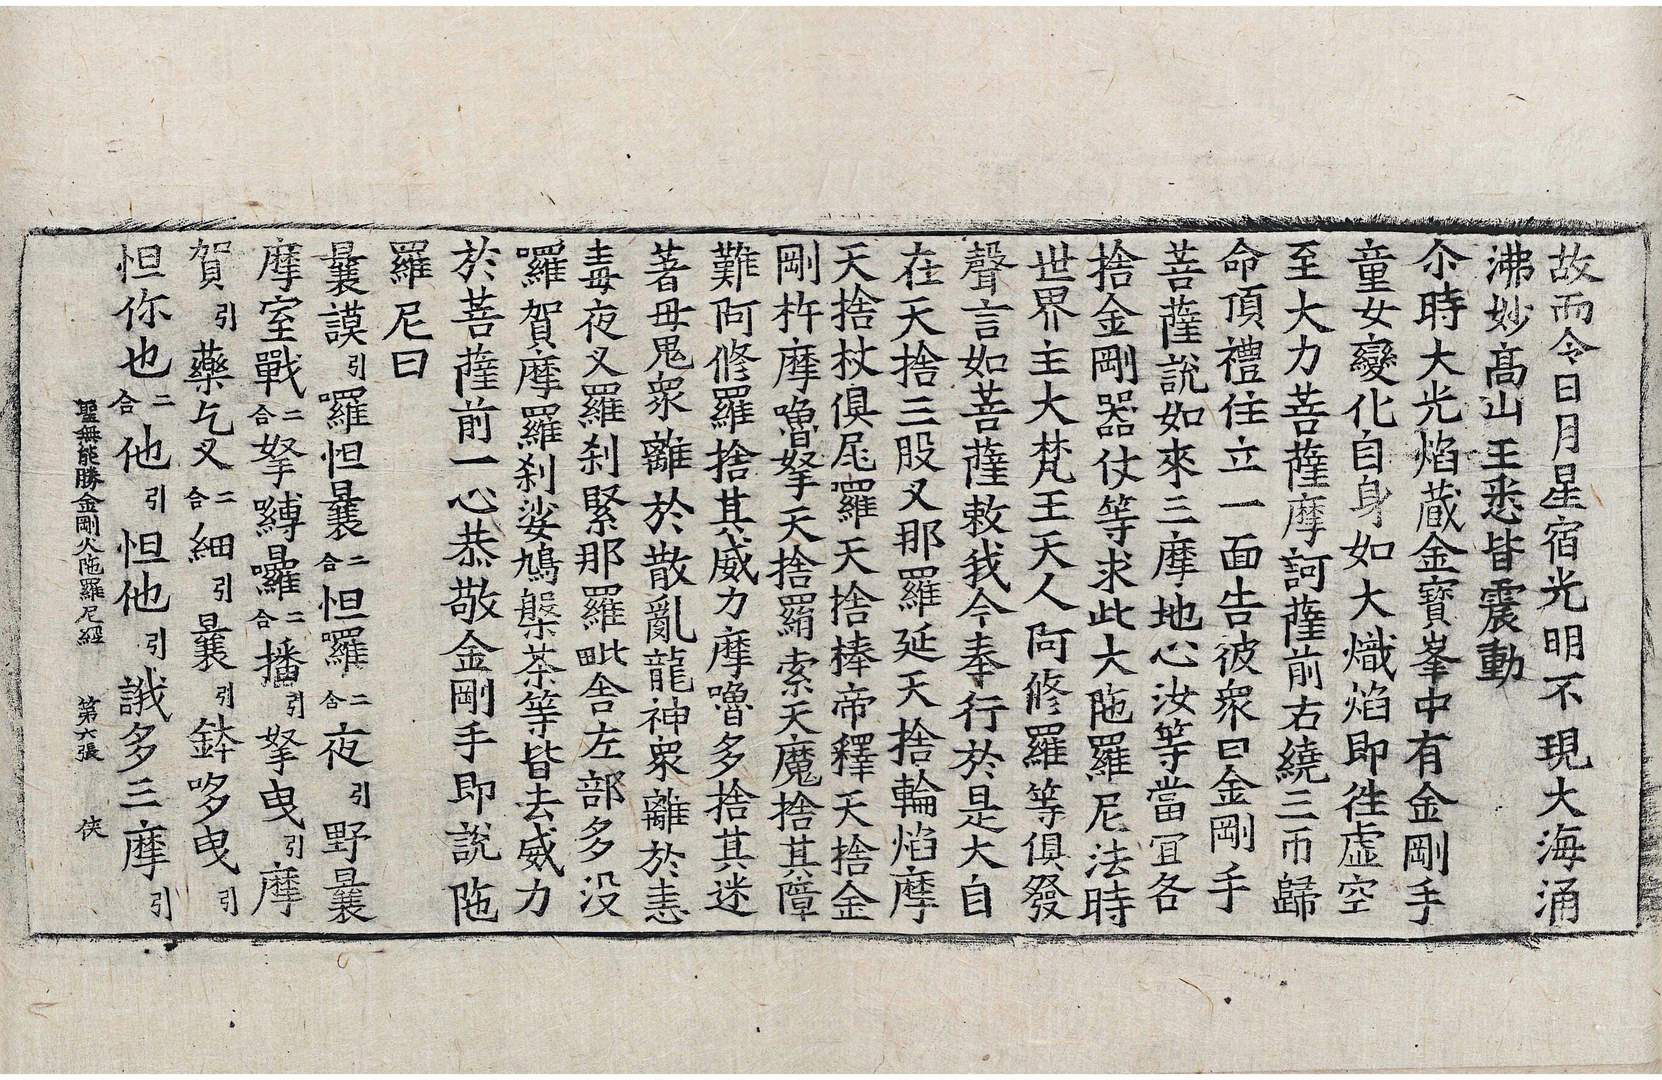 故而令日月星宿光明不現大海涌
沸妙髙山王悉皆震動
尒時大光焰蔵金寶峯中有金剛手
童女變化自身如大熾焰即徃虛空
至大力菩薩摩訶薩前右繞三帀歸
命頂禮住立一面告彼衆曰金剛手
菩薩說如來三摩地心汝等當冝各
捨金剛器仗等求此大陁羅尼法時
世界主大梵王天人阿修羅等俱發
聲言如菩薩敕我今奉行於是大自
在天捨三股叉那羅延天捨輪焰摩
天捨杖俱尾羅天捨棒帝釋天捨金
剛杵摩嚕拏天捨羂索天魔捨其障
難阿修羅捨其威力摩嚕多捨其迷
著母鬼衆離於散亂龍神衆離於恚
毒夜叉羅刹緊那羅毗舍左部多没
囉賀摩羅刹娑鳩槃茶等皆去威力
於菩薩前一心恭敬金剛手即說陁
羅尼曰
曩謨引囉怛曩二合怛囉二合夜引野曩
摩室戰二合拏嚩曪二合播引拏曳引摩
賀引藥乞叉二合細引曩引鉢哆曳引
怛你也二合他引怛他引誐多三摩引
聖無能勝金剛火陁羅尼經 第六張 俠